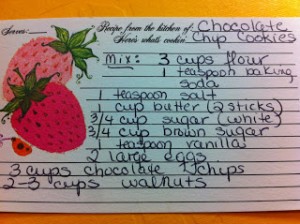 Serves: Recipe from the kitchen of: Chocolate
Here's what's cookin': Chip Cookies
Mix: 3 cups flour
1 teaspoon baking
soda
1 teaspoon salt
1 cup butter (2 sticks)
3/4 cup sugar (white)
3/4 cup brown sugar
1 teaspoon vanilla
2 large eggs
3 cups chocolate chips
2-3 cups walnuts